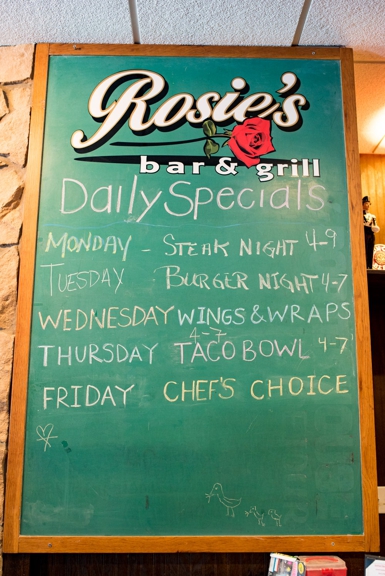 Rosie's
bar & grill
Daily Specials
MONDAY - STEAK NIGHT 4-9
TUESDAY BURGER NIGHT 4-7
WEDNESDAY WINGS & WRAPS
4-7
THURSDAY TACO BOWL 4-7
FRIDAY CHEF'S CHOICE